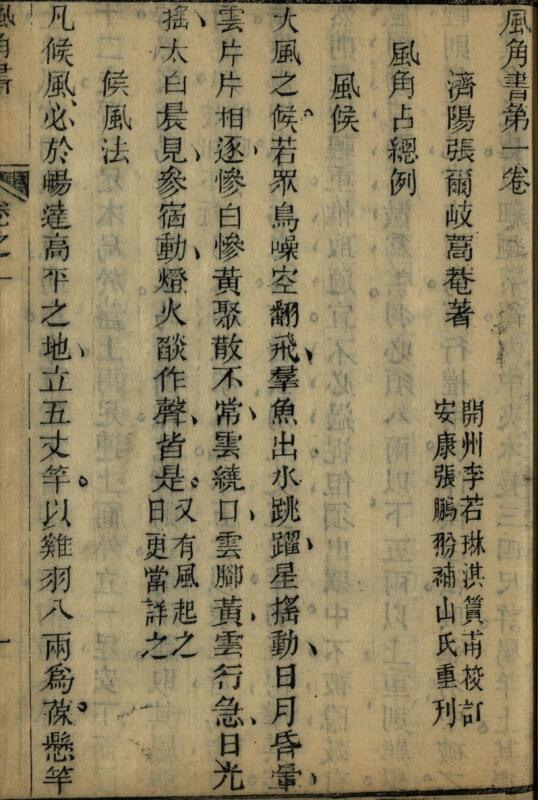 風角書第一卷
濟陽張爾岐蒿菴著
開州李若琳淇篔甫校訂
安康張鵬翂補山氏重刊
風角占總例
風候
大風之候若眾鳥噪空翻飛羣魚出水跳躍星搖動日月昏暈
雲片片相逐慘白慘黃聚散不常雲繞口雲腳黃雲行急日光
搖太白晨見參宿動燈火燄作聲皆是又有風起之
日更當詳之
候風法
凡候風必於暢達高平之地立五丈竿以雞羽八兩為葆懸竿